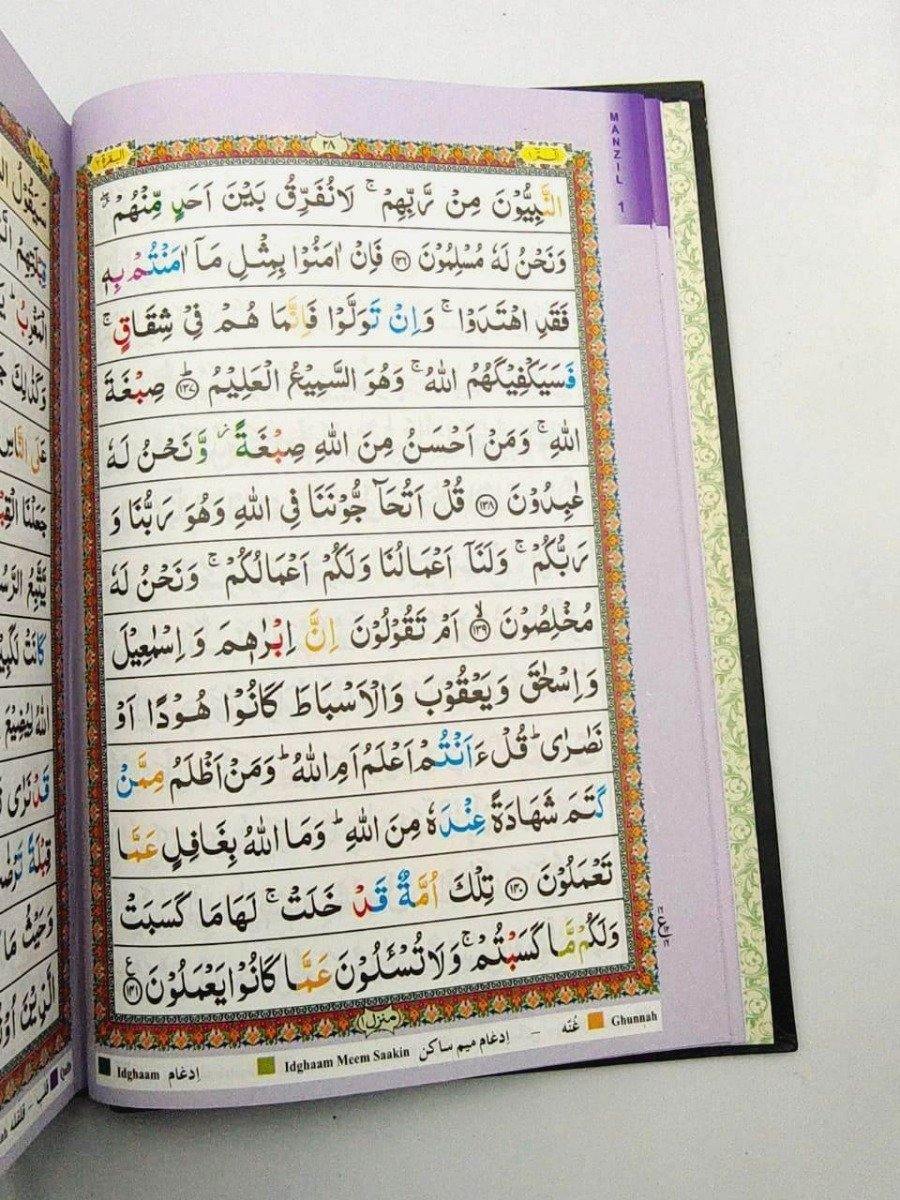 الٓمّٓ ١ ٢٨ البقرة ٢
MANZIL 1
النَّبِيُّوْنَ مِنْ رَّبِّهِمْ ۚ لَا نُفَرِّقُ بَيْنَ اَحَدٍ مِّنْهُمْ ۖ
وَنَحْنُ لَهٗ مُسْلِمُوْنَ ﴿۱۳۶﴾ فَاِنْ اٰمَنُوْا بِمِثْلِ مَآ اٰمَنْتُمْ بِهٖ
فَقَدِ اهْتَدَوْا ۚ وَاِنْ تَوَلَّوْا فَاِنَّمَا هُمْ فِيْ شِقَاقٍ ۚ
فَسَيَكْفِيْكَهُمُ اللّٰهُ ۚ وَهُوَ السَّمِيْعُ الْعَلِيْمُ ﴿۱۳۷﴾ؕ صِبْغَةَ
اللّٰهِ ۚ وَمَنْ اَحْسَنُ مِنَ اللّٰهِ صِبْغَةً ؗ وَّنَحْنُ لَهٗ
عٰبِدُوْنَ ﴿۱۳۸﴾ قُلْ اَتُحَآجُّوْنَنَا فِي اللّٰهِ وَهُوَ رَبُّنَا وَ
رَبُّكُمْ ۚ وَلَنَآ اَعْمَالُنَا وَلَكُمْ اَعْمَالُكُمْ ۚ وَنَحْنُ لَهٗ
مُخْلِصُوْنَ ﴿۱۳۹﴾ۙ اَمْ تَقُوْلُوْنَ اِنَّ اِبْرٰهٖمَ وَاِسْمٰعِيْلَ
وَاِسْحٰقَ وَيَعْقُوْبَ وَالْاَسْبَاطَ كَانُوْا هُوْدًا اَوْ
نَصٰرٰى ؕ قُلْ ءَاَنْتُمْ اَعْلَمُ اَمِ اللّٰهُ ؕ وَمَنْ اَظْلَمُ مِمَّنْ
كَتَمَ شَهَادَةً عِنْدَهٗ مِنَ اللّٰهِ ؕ وَمَا اللّٰهُ بِغَافِلٍ عَمَّا
تَعْمَلُوْنَ ﴿۱۴۰﴾ تِلْكَ اُمَّةٌ قَدْ خَلَتْ ۚ لَهَا مَا كَسَبَتْ
وَلَكُمْ مَّا كَسَبْتُمْ ۚ وَلَا تُسْـَٔلُوْنَ عَمَّا كَانُوْا يَعْمَلُوْنَ ﴿۱۴۱﴾ ع
منزل ١
Idghaam ادغام Idghaam Meem Saakin ادغام ميم ساكن – غُنّه Ghunnah